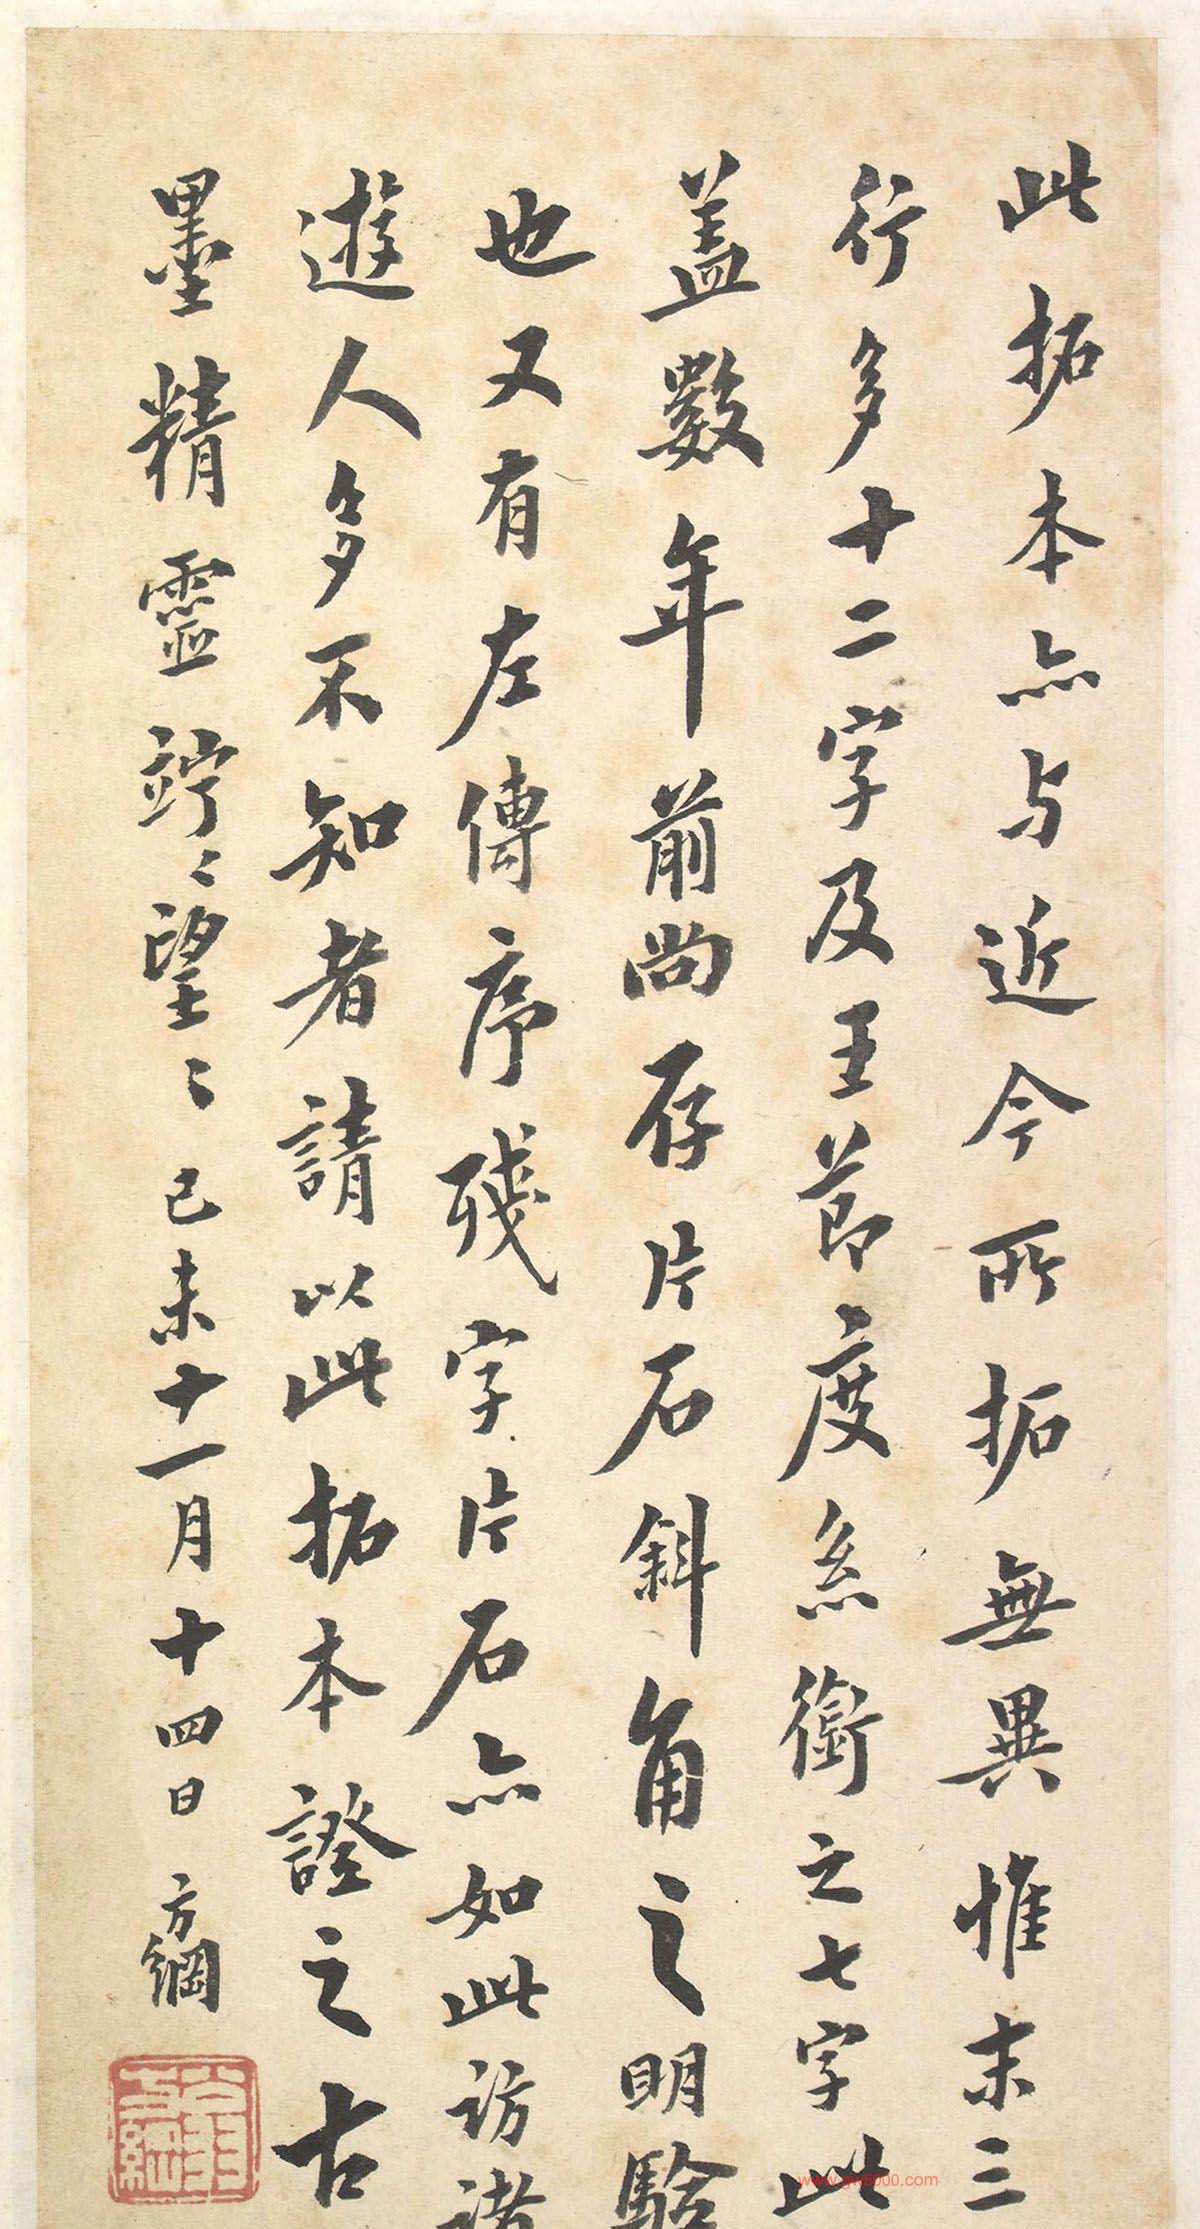 此拓本亦与近今所拓無異惟末三
行多十二字及王節度系銜之七字此
蓋數年前尚存片石斜角之明驗
也又有左傳序殘字片石亦如此訪諸
遊人多不知者請以此拓本證之古
墨精靈竚〻望〻己未十一月十四日方綱
翁方綱
www.yac8000.com